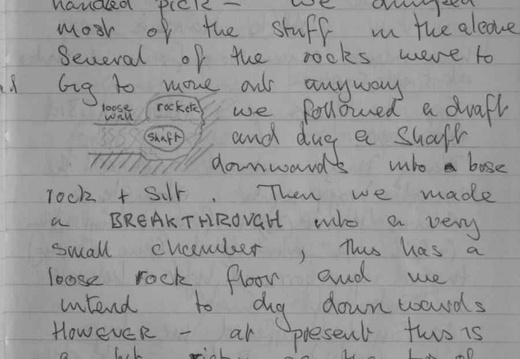 handed pick - we dumped
most of the stuff in the alcove
Several of the rocks were to
big to move out anyway
loose wall rocket
we followed a draft
shaft
and dug a shaft
downwards into a loose
rock + silt. Then we made
a BREAKTHROUGH into a very
small chamber, this has a
loose rock floor and we
intend to dig downwards
HOWEVER - at present this is
a bit